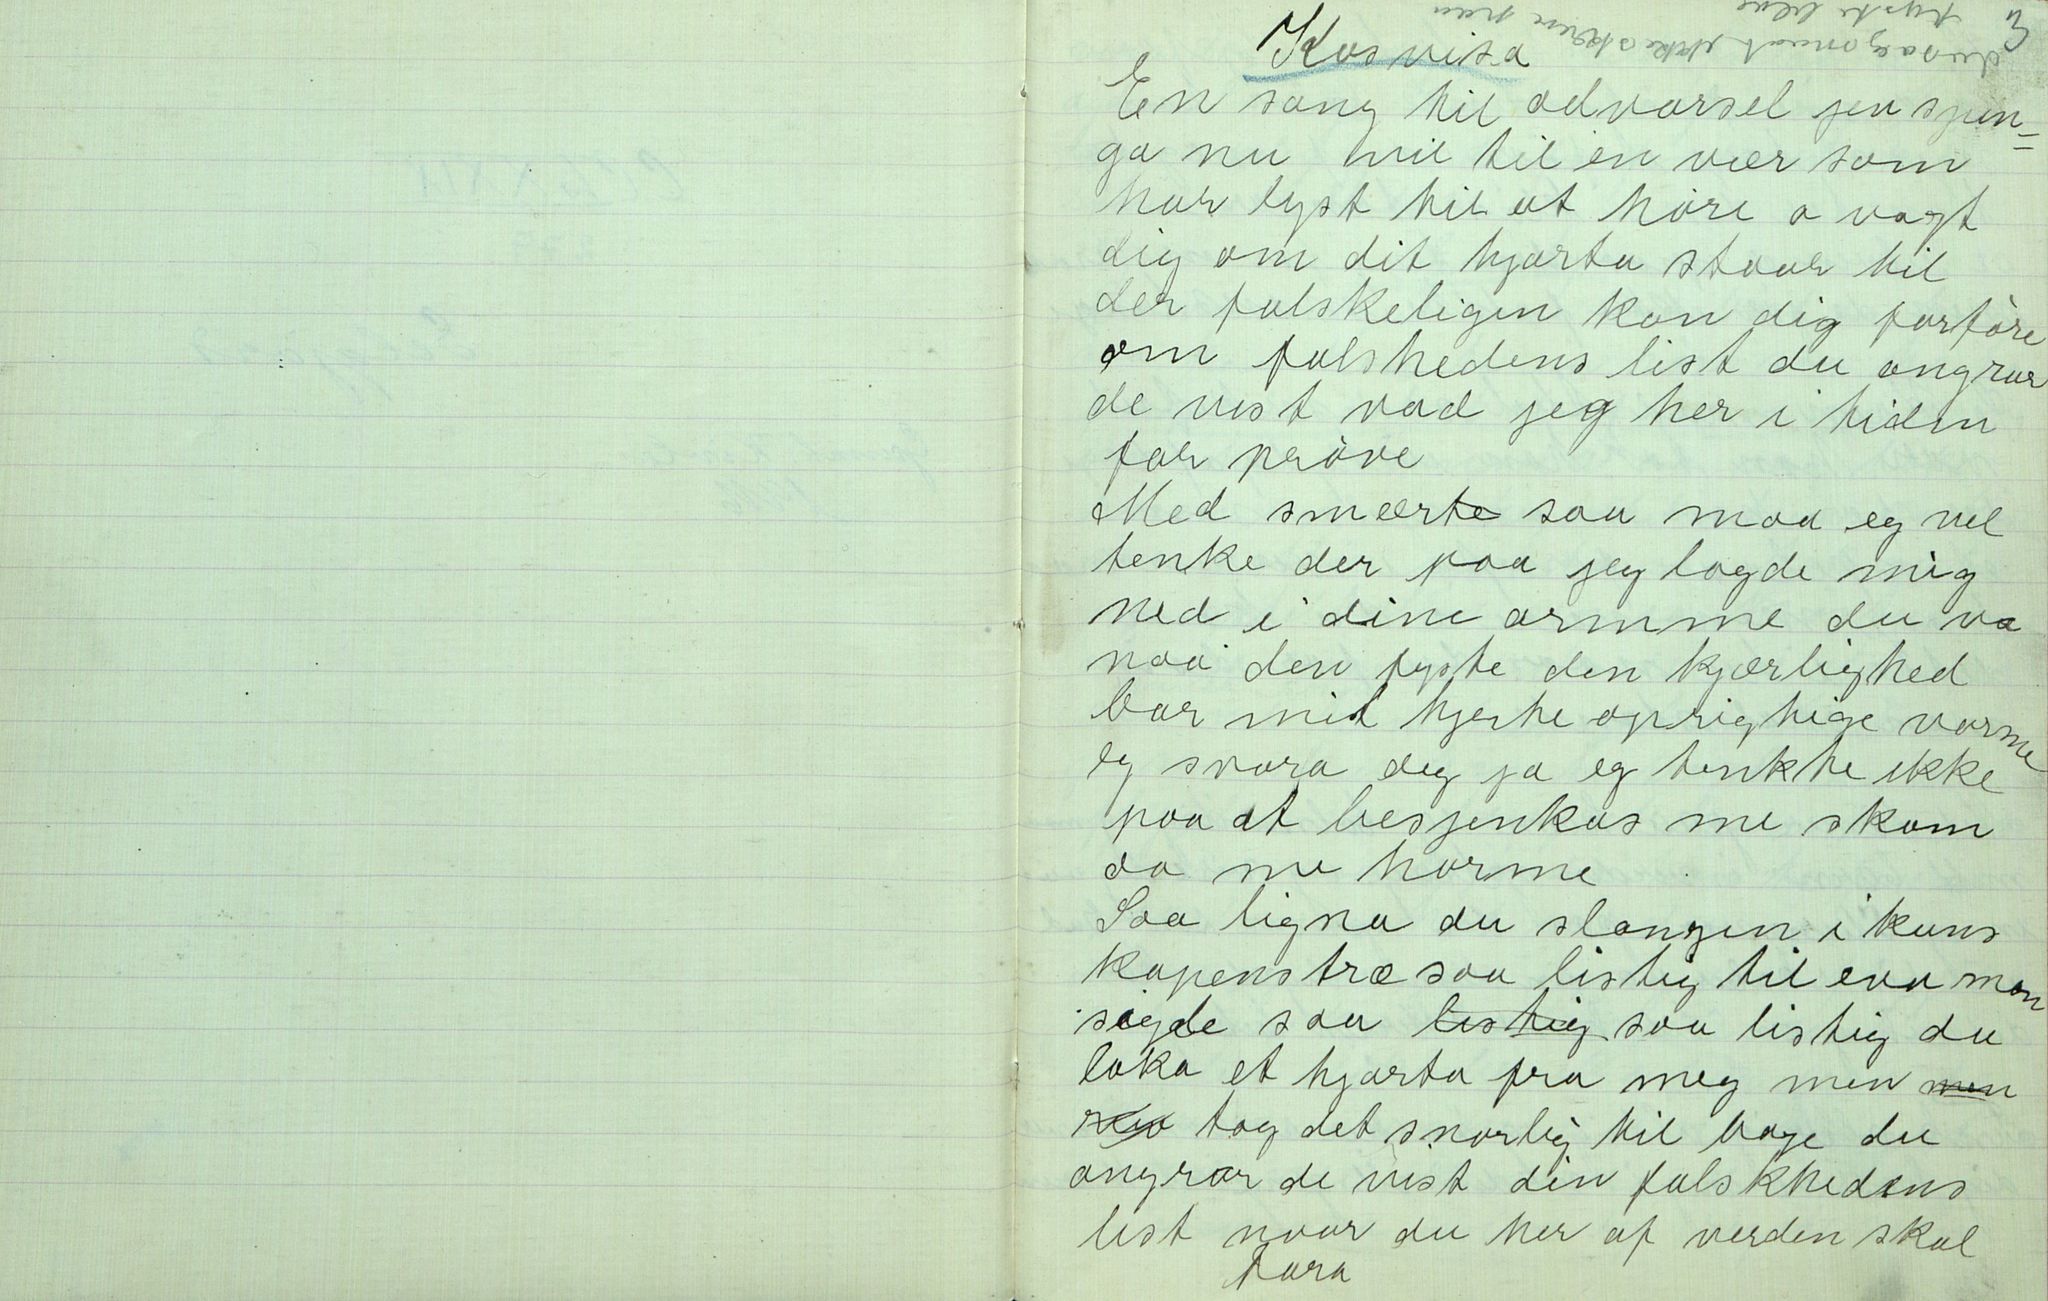 Kosvisa
En sang til advarsel jeu sjun=
ga nu vil til en vær som
har lyst til at høre o vagt
dig om dit hjarta staar til
der falskeligen kan dig forføre
om falshedens list du angrar
de vist vad jeg her i tiden
far prøve
Med smærte saa maa eg vel
tenke der paa jeg lagde mig
ned i dine armme du va
naa den fyste den kjærlighed
bar mit hjerte oprigtige varme
eg svara deg ja eg tenkte ikke
paa at besjenkas me skam
aa me harme
Saa ligna du slangen i kuns
kapens træ saa listig til eva man
sigde saa listig saa listig du
loka et hjarta fra meg men men
tag det snarlig til bage du
angrar de vist din falskhedens
list naar du her af verden skal
fara